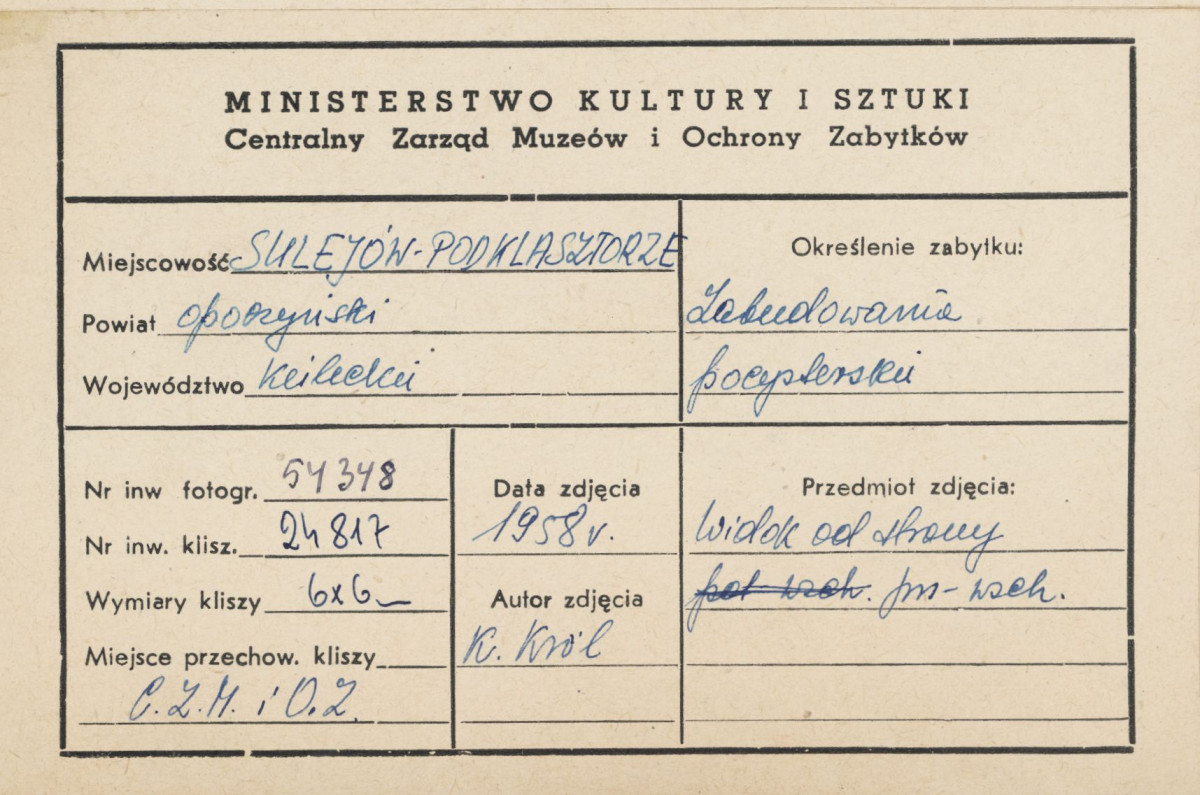 MINISTERSTWO KULTURY I SZTUKI
Centralny Zarząd Muzeów i Ochrony Zabytków
Miejscowość SULEJÓW-PODKLASZTORZE
Powiat opoczyński
Województwo Kielecki
Określenie zabytku:
Zabudowania
pocysterskie
Nr inw fotogr. 54348
Nr inw. klisz. 24817
Wymiary kliszy 6x6
Miejsce przechow. kliszy
C.Z.M. i O.Z.
Data zdjęcia
1958 r.
Autor zdjęcia
K. Król
Przedmiot zdjęcia:
Widok od strony
poł wsch. pn-wsch.